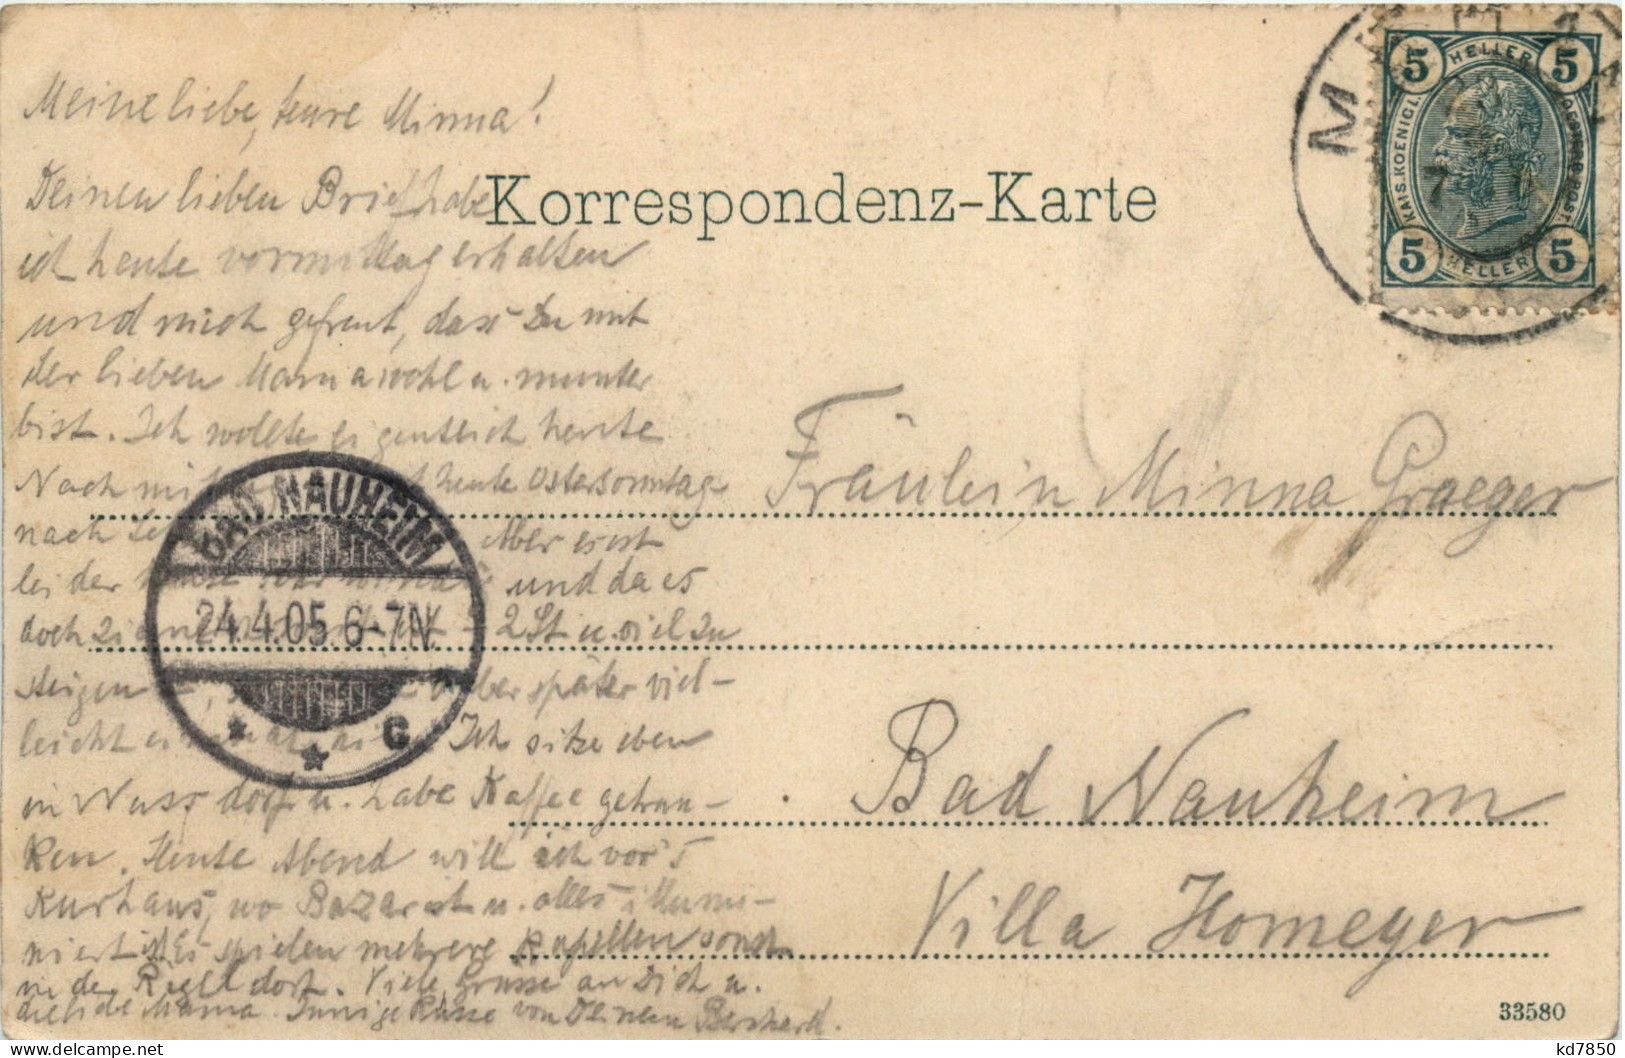 Meine liebe, teure Minna!
Deinen lieben Brief habe
ich heute vormittag erhalten
und mich gefreut, dass Du mit
der lieben Mama wohl u. munter
bist. Ich wollte eigentlich heute
Nach mit heute Ostersonntag
nach Aber es ist
bei der und da es
doch 2 St u. viel zu
steigen aber später viel-
leicht einmal Ich sitze eben
in Nussdorf u. habe Kaffee getrun-
ken. Heute Abend will ich vor's
Kurhaus, wo Bazar ist u. alles illumi-
niert ist Es spielen mehrere Kapellen sonst
in der Regel dort. Viele Grüsse an Dich u.
die liebe Mama. Innige Küsse von Deinem Bernhard.
Korrespondenz-Karte
5 HELLER 5
KAIS. KOENIGL.
5 HELLER 5
M
BAD NAUHEIM
24.4.05.6-7N.
* * C
Fräulein Minna Graeger
Bad Nauheim
Villa Homeyer
33580
kd7850